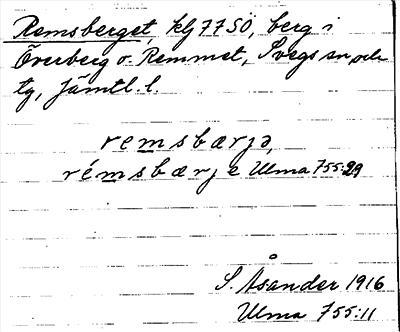 Remsberget, klj 77 SÖ, berg i
Överberg o. Remmet, Svegs sn och
tg, Jämtl. l.
remsbærjə,
rémsbærje Ulma 755:29
S. Åsander 1916
Ulma 755:11